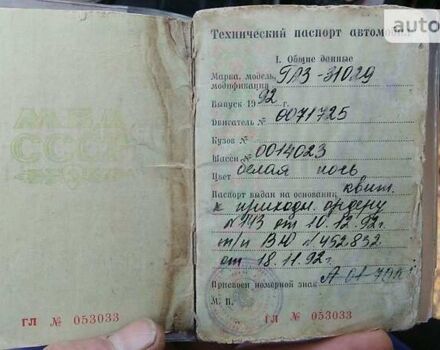 СССР
ГЛ № 053033
auto
Технический паспорт автомоби
I. Общие данные
Марка, модель, ГАЗ-31029
модификация
Выпуск 19 92 г.
Двигатель № 0071725
Кузов №
Шасси № 0014023
Цвет белая ночь
Паспорт выдан на основании квит.
к приходн. ордеру
№ 143 от 10.12.92г.
т/п ВЮ № 452832
от 18.11.92г.
Присвоен номерной знак А 01-
М. П.
ГЛ № 053033